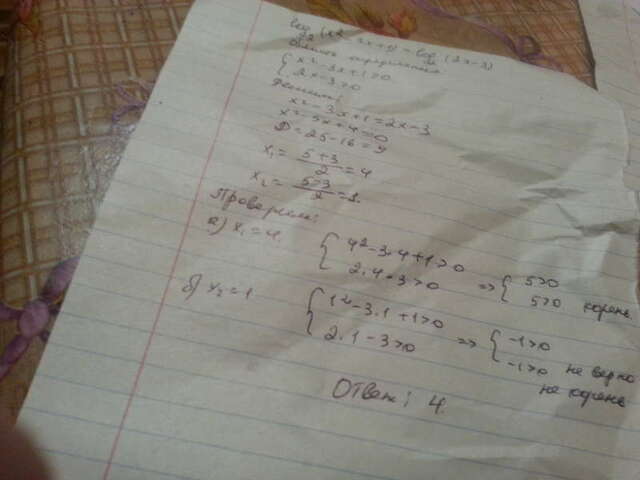 log (x² - 3x + 1) = log (2x - 3)
Область определения
{ x² - 3x + 1 > 0
2x - 3 > 0
Решение:
x² - 3x + 1 = 2x - 3
x² - 5x + 4 = 0
D = 25 - 16 = 9
x₁ = (5+3)/2 = 4
x₂ = (5-3)/2 = 1.
Проверим:
а) x₁ = 4. { 4² - 3·4 + 1 > 0 => { 5 > 0
2·4 - 3 > 0 5 > 0 корень
б) x₂ = 1 { 1² - 3·1 + 1 > 0 => { -1 > 0
2·1 - 3 > 0 -1 > 0 не верно
не корень
Ответ: 4.